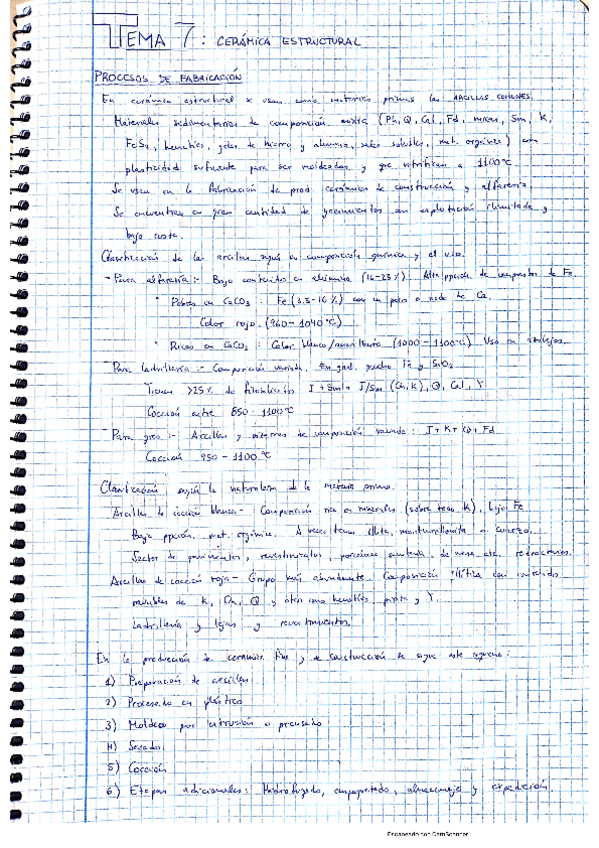 TEMA 7: CERÁMICA ESTRUCTURAL
PROCESOS DE FABRICACIÓN
En cerámica estructural se usan como materias primas las ARCILLAS COMUNES.
Materiales sedimentarios de composición mixta (Ph, Q, Cal, Fd, micas, Sm, K,
FeS₂, hematites, geles de hierro y alumina, sales solubles, mat. orgánica) con
plasticidad suficiente para ser moldeadas y que vitrifican a 1100°C
Se usan en la fabricación de prod. cerámicos de construcción y alfarería.
Se encuentran en gran cantidad de yacimientos con explotación ilimitada y
bajo coste.
Clasificación de las arcillas según su composición química y el uso.
- Para alfarería:- Bajo contenido en alúmina (16-23%). Alta ppción. de compuestos de Fe.
· Pobres en CaCO₃: Fe (3.5-16%) con un poco o nada de Ca.
Color rojo. (960-1040°C)
· Ricas en CaCO₃: Color blanco/amarillento (1000-1100°C) Uso en azulejos.
Para Ladrillería:- Composición variada. En gral. mucho Fe y
Tienen >25% de filosilicatos I + Sm + I/Sm (Ch, K), Q, Cal, Y
Cocción entre 850-1100°C
- Para gres:- Arcillas y pizarras de composición variada: I + K + Q + Fd
Cocción 950-1100°C
Clasificación según la naturaleza de la materia prima.
Arcillas de cocción blanca- Composición rica en minerales (sobre todo K), bajo Fe
Baja ppción. mat. orgánica. A veces tienen illita, montmorillonita o cuarzo.
Sector de pavimentos, revestimientos, porcelana sanitaria, de mesa etc.
Arcillas de cocción roja- Grupo más abundante. Composición illítica con contenidos
variables de K, Ch, Q y otros como hematites pirita y Y.
Ladrillería y tejas y recubrimientos.
En la producción de cerámica fina y de construcción se sigue este esquema:
1) Preparación de arcillas
2) Procesado en plástico
3) Moldeo por extrusión o prensado
4) Secado
5) Cocción
6) Etapas adicionales: Hidrofugado, empaquetado, almacenaje y expedición.
Escaneado con CamScanner